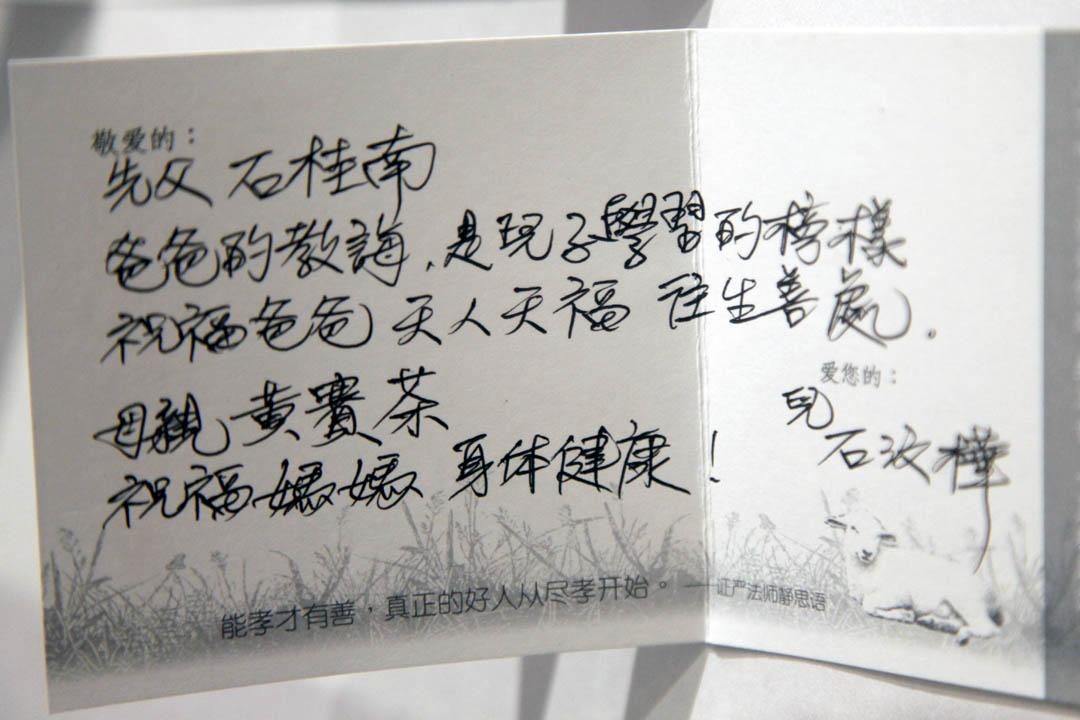 敬爱的：
先父 石桂南
爸爸的教誨，是現子學習的榜樣
祝福爸爸 天人天福 往生善處．
母親 黃賽茶
祝福媽媽 身体健康！
爱您的：
兒
石汶樺
能孝才有善，真正的好人从尽孝开始。 —证严法师静思语